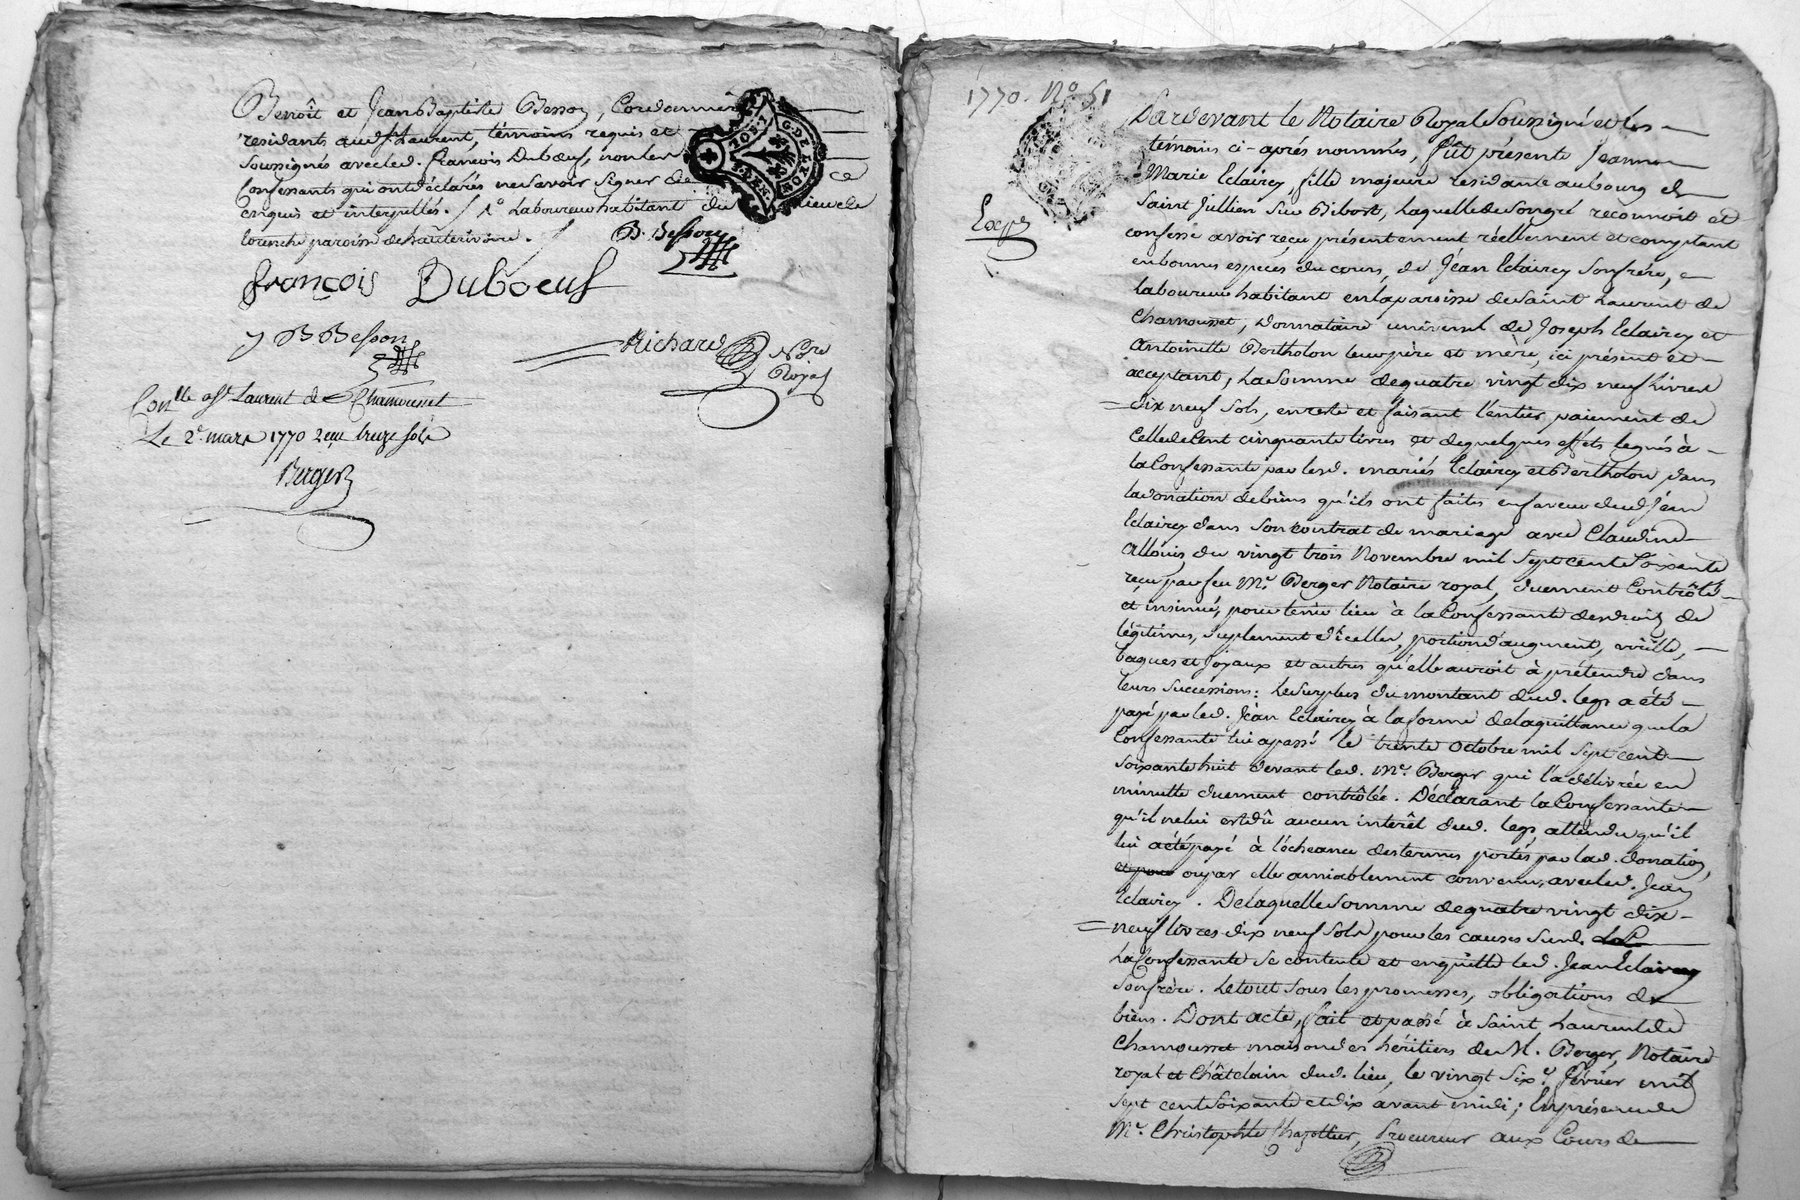 Benoît et Jean Baptiste Besson, Cordonniers
residants aud. St Laurent, témoins requis et
soussignés avec led. François Duboeuf, non les
Confessants qui ont déclarés ne savoir signer de ce
enquis et interpellés. / 1º Laboureur habitant du
lorenche paroisse de hauterivoire. /
B. Besson
françois Duboeuf
J B Besson
Richard Nore Royal
Conlle a St Laurent de Chamousset
Le 2e. mars 1770 Reçu treize sols
Berger
G. DE LYON
1770. No. 51
Expé
Pardevant le Notaire Royal Soussigné et les
témoins ci-après nommés, fût présente Jeanne
Marie Eclaircy, fille majeure residante au bourg de
Saint Jullien sur Bibost, Laquelle de son gré reconnoit et
confesse avoir reçu présentement réellement et comptant
en bonnes espèces du cours, de Jean Eclaircy son frére,
Laboureur habitant en la paroisse de Saint Laurent de
Chamousset, Donnataire universel de Joseph Eclaircy et
Antoinette Bertholon leur père et mère, ici présent et
acceptant, La Somme de quatre vingt dix neuf Livres
dix neuf sols, en reste et faisant l'entier paiement de
Celle de Cent cinquante livres et de quelques effets legués à
la Confessante par lesd. mariés Eclaircy et Bertholon dans
la donation de biens qu'ils ont faites en faveur dud. Jean
Eclaircy dans son contrat de mariage avec Claudine
Allouis du vingt trois Novembre mil Sept cent Soixante
reçu par feu Me. Berger Notaire royal, duement Contrôlé
et insinué, pour tenir lieu à la Confessante des droits de
légitimes, suplement d'icelles, portion d'augment, virille,
bagues et joyaux et autres qu'elle auroit à prétendre dans
leurs successions: Le Surplus du montant dud. legs a été
payé par led. Jean Eclaircy à la forme de la quittance que la
Confessante lui a passé le trente octobre mil Sept cent
soixante huit devant led. Me. Berger qui l'a délivrée en
minutte duement contrôlée. Déclarant la Confessante
qu'il ne lui est dû aucun interêt dud. legs, attendu qu'il
lui a été payé à l'écheance des termes portés par lad. donation,
et pour ou par elle amiablement convenus avec led. Jean
Eclaircy. De laquelle Somme de quatre vingt dix
neuf livres dix neuf sols pour les causes susd.
La Confessante se contente et en quitte led. Jean Eclaircy
son frère. Le tout sous les promesses, obligations de
biens. Dont acte, fait et passé à Saint Laurent de
Chamousset maison des héritiers de M. Berger, Notaire
royal et Châtelain dud. lieu, le vingt Sixe. février mil
sept cent Soixante et dix avant midi; En présence de
Me. Christophle Chazottier, Procureur aux Cours de